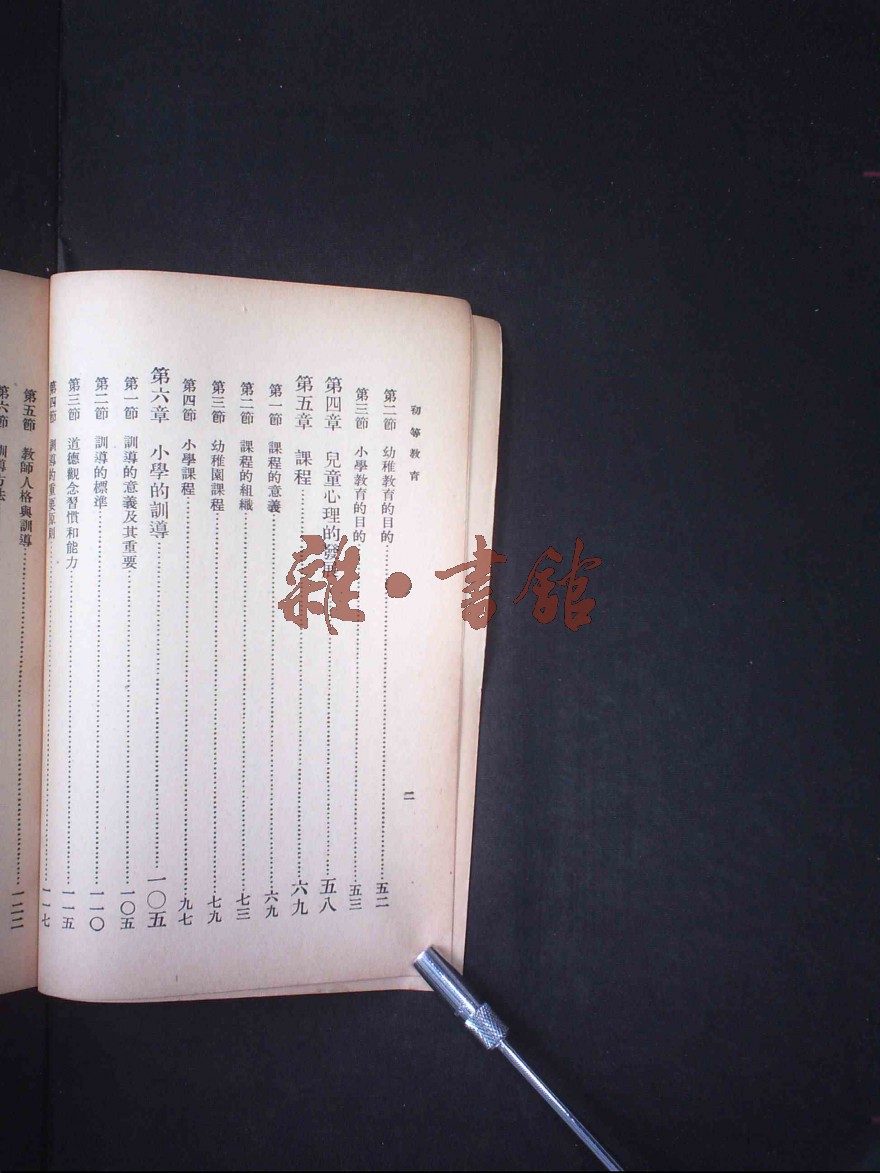 初等教育
二
第二節 幼稚教育的目的………五二
第三節 小學教育的目的………五三
第四章 兒童心理的發展………五八
第五章 課程………六九
第一節 課程的意義………六九
第二節 課程的組織………七三
第三節 幼稚園課程………七九
第四節 小學課程………九七
第六章 小學的訓導………一〇五
第一節 訓導的意義及其重要………一〇五
第二節 訓導的標準………一一〇
第三節 道德觀念習慣和能力………一一五
第四節 訓導的重要原則………一一七
第五節 教師人格與訓導………一二二
第六節 訓導方法
雜·書館